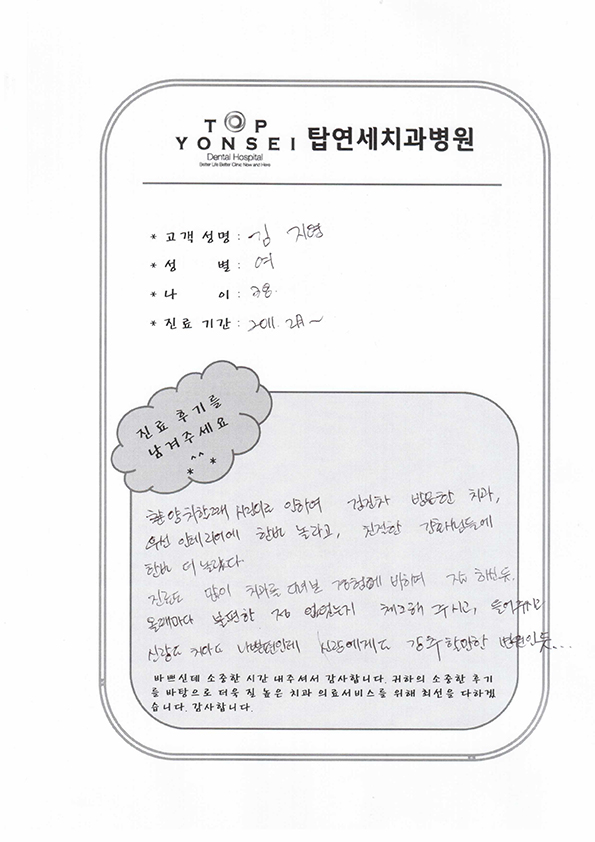 TOP
YONSEI 탑연세치과병원
Dental Hospital
Better Life Better Clinic Now and Here
* 고객 성명 : 김 지영
* 성 별 : 여
* 나 이 :
* 진료 기간 : 2011. 2月 ~
진료 후기를
남겨주세요
^^
* *
인하여 검진차 방문한 치과,
우선 인테리어에 한번 놀라고, 친절한 간호사님들에
한번 더 놀랐다
진료도 많이 치과를 다녀본 경험에 비하여 잘 하신듯.
올때마다 불편한 점 없었는지 체크해 주시고, 들어주시고
신랑도 치아도 나쁜편인데 신랑에게도 강추할만한 병원인듯...
바쁘신데 소중한 시간 내주셔서 감사합니다. 귀하의 소중한 후기
를 바탕으로 더욱 질 높은 치과 의료서비스를 위해 최선을 다하겠
습니다. 감사합니다.